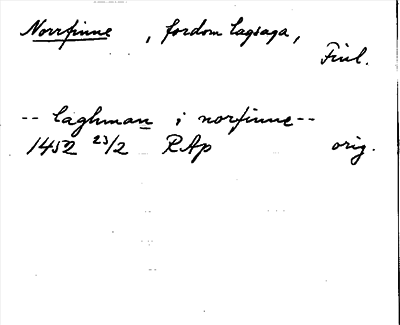 Norrfinne, fordom lagsaga,
Finl.
-- laghman i norfinne --
1452 23/2 RAp orig.